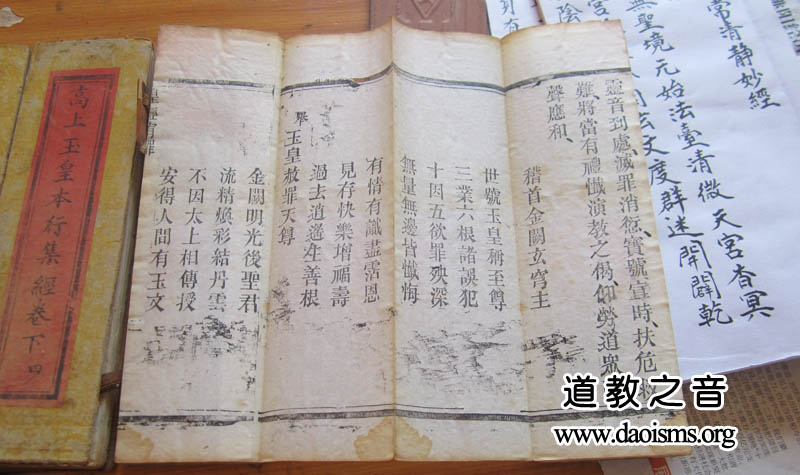 常清静妙經
無聖境元始法臺清微天宮杳冥
度群迷開闢乾
靈音到處滅罪消愆寳號宣時扶危救
難將當有禮懺演教之偽仰勞道眾
聲應和、
稽首金闕玄穹主
世號玉皇稱至尊
三業六根諸誤犯
十因五欲罪殃深
無量無邊皆懺悔
有情有識盡霑恩
見存快樂增福壽
過去逍遙生善根
舉玉皇赦罪天尊
金闕明光後聖君
流精煥彩結丹雲
不因太上相傳授
安得人間有玉文
高上玉皇本行集經卷下四
道教之音
www.daoisms.org